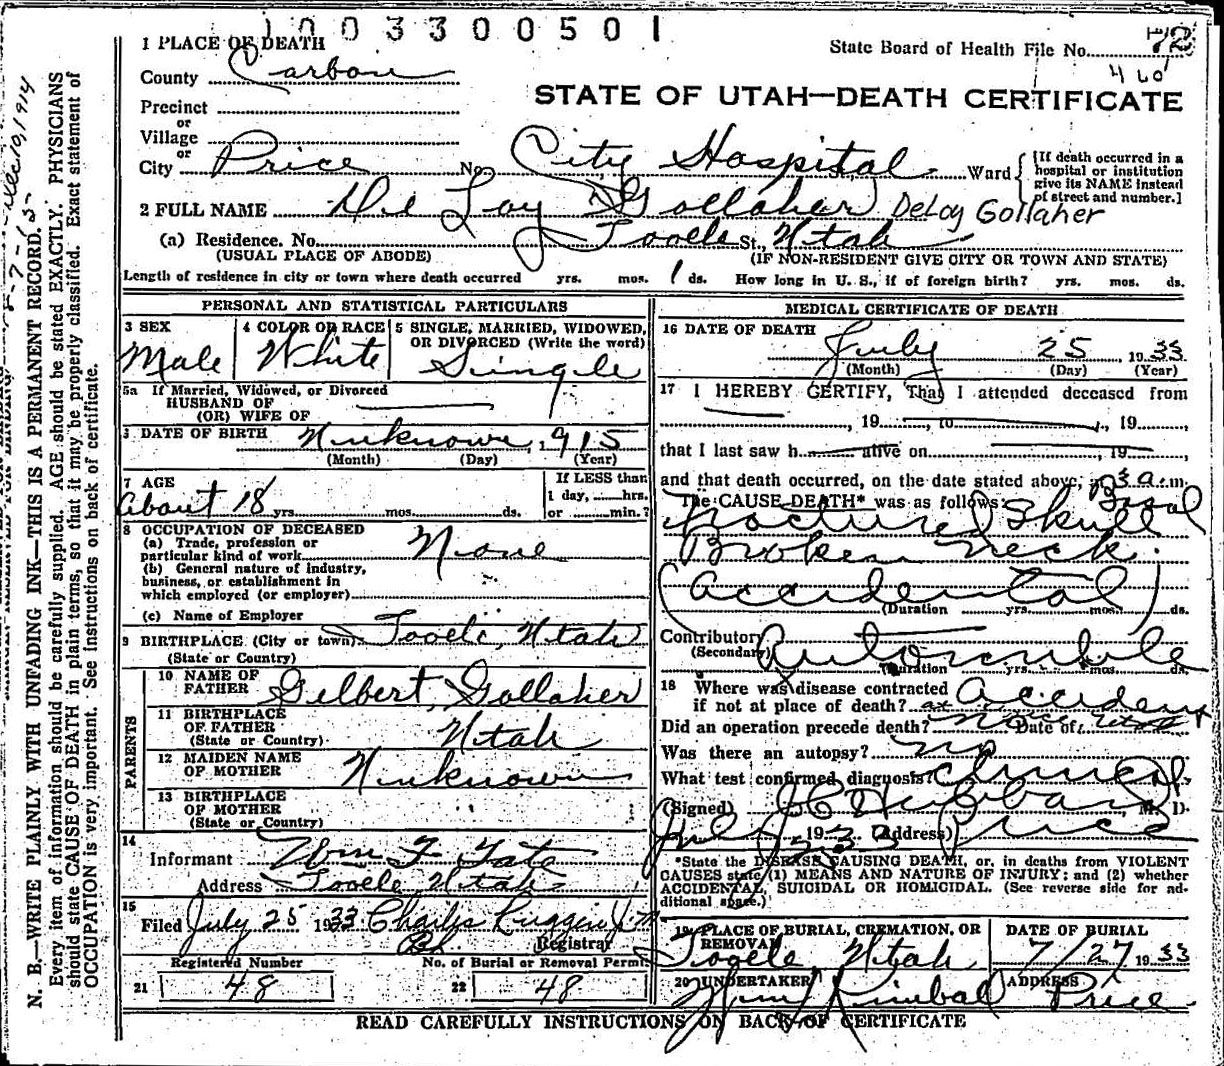 1003300501
1 PLACE OF DEATH
State Board of Health File No. 72
County Carbon
460
STATE OF UTAH—DEATH CERTIFICATE
Precinct
or
Village
or
City Price No. City Hospital St., Ward
[If death occurred in a hospital or institution give its NAME instead of street and number.]
2 FULL NAME De Loy Gollaher DeLoy Gollaher
(a) Residence. No. Tooele St., Utah
(USUAL PLACE OF ABODE) (IF NON-RESIDENT GIVE CITY OR TOWN AND STATE)
Length of residence in city or town where death occurred yrs. mos. 1 ds. How long in U. S., if of foreign birth? yrs. mos. ds.
PERSONAL AND STATISTICAL PARTICULARS
3 SEX 4 COLOR OR RACE 5 SINGLE, MARRIED, WIDOWED, OR DIVORCED (Write the word)
Male White Single
5a If Married, Widowed, or Divorced
HUSBAND OF
(OR) WIFE OF
6 DATE OF BIRTH Unknown, 1915
(Month) (Day) (Year)
7 AGE If LESS than
About 18 yrs. mos. ds. 1 day, hrs. or min.?
8 OCCUPATION OF DECEASED
(a) Trade, profession or
particular kind of work None
(b) General nature of industry,
business, or establishment in
which employed (or employer)
(c) Name of Employer
9 BIRTHPLACE (City or town) Tooele, Utah
(State or Country)
PARENTS
10 NAME OF FATHER Gilbert Gollaher
11 BIRTHPLACE OF FATHER Utah
(State or Country)
12 MAIDEN NAME OF MOTHER Unknown
13 BIRTHPLACE OF MOTHER
(State or Country)
14
Informant Wm F Tate
Address Tooele, Utah
15
Filed July 25 1933 Charles Ruggeri Jr
Registrar
Registered Number No. of Burial or Removal Permit
21 48 22 48
MEDICAL CERTIFICATE OF DEATH
16 DATE OF DEATH July 25, 1933
(Month) (Day) (Year)
17 I HEREBY CERTIFY, That I attended deceased from
, 19 , to , 19 ,
that I last saw h alive on , 19
and that death occurred, on the date stated above, 3 a.m.
The CAUSE DEATH* was as follows: Basal
Fractured Skull
Broken neck.
(Accidental)
(Duration yrs. mos. ds.
Contributory Automobile
(Secondary) (Duration yrs. mos. ds.
18 Where was disease contracted Accident
if not at place of death?
Did an operation precede death? Date of
Was there an autopsy? no
What test confirmed diagnosis? Clinical
(Signed) J C Hubbard, M. D.
July 1933 (Address) Price
*State the DISEASE CAUSING DEATH, or, in deaths from VIOLENT
CAUSES state (1) MEANS AND NATURE OF INJURY; and (2) whether
ACCIDENTAL, SUICIDAL OR HOMICIDAL. (See reverse side for ad-
ditional space.)
19 PLACE OF BURIAL, CREMATION, OR REMOVAL DATE OF BURIAL
Tooele Utah 7/27 1933
20 UNDERTAKER ADDRESS
Kimbal Price
READ CAREFULLY INSTRUCTIONS ON BACK OF CERTIFICATE
N. B.—WRITE PLAINLY WITH UNFADING INK—THIS IS A PERMANENT RECORD.
Every item of information should be carefully supplied. AGE should be stated EXACTLY. PHYSICIANS
should state CAUSE OF DEATH in plain terms, so that it may be properly classified. Exact statement of
OCCUPATION is very important. See instructions on back of certificate.
Dec 10, 1914